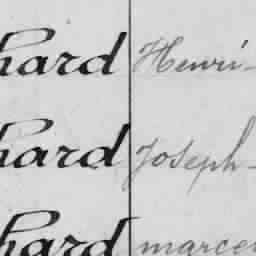 hard Henri-
hard Joseph-
hard marce